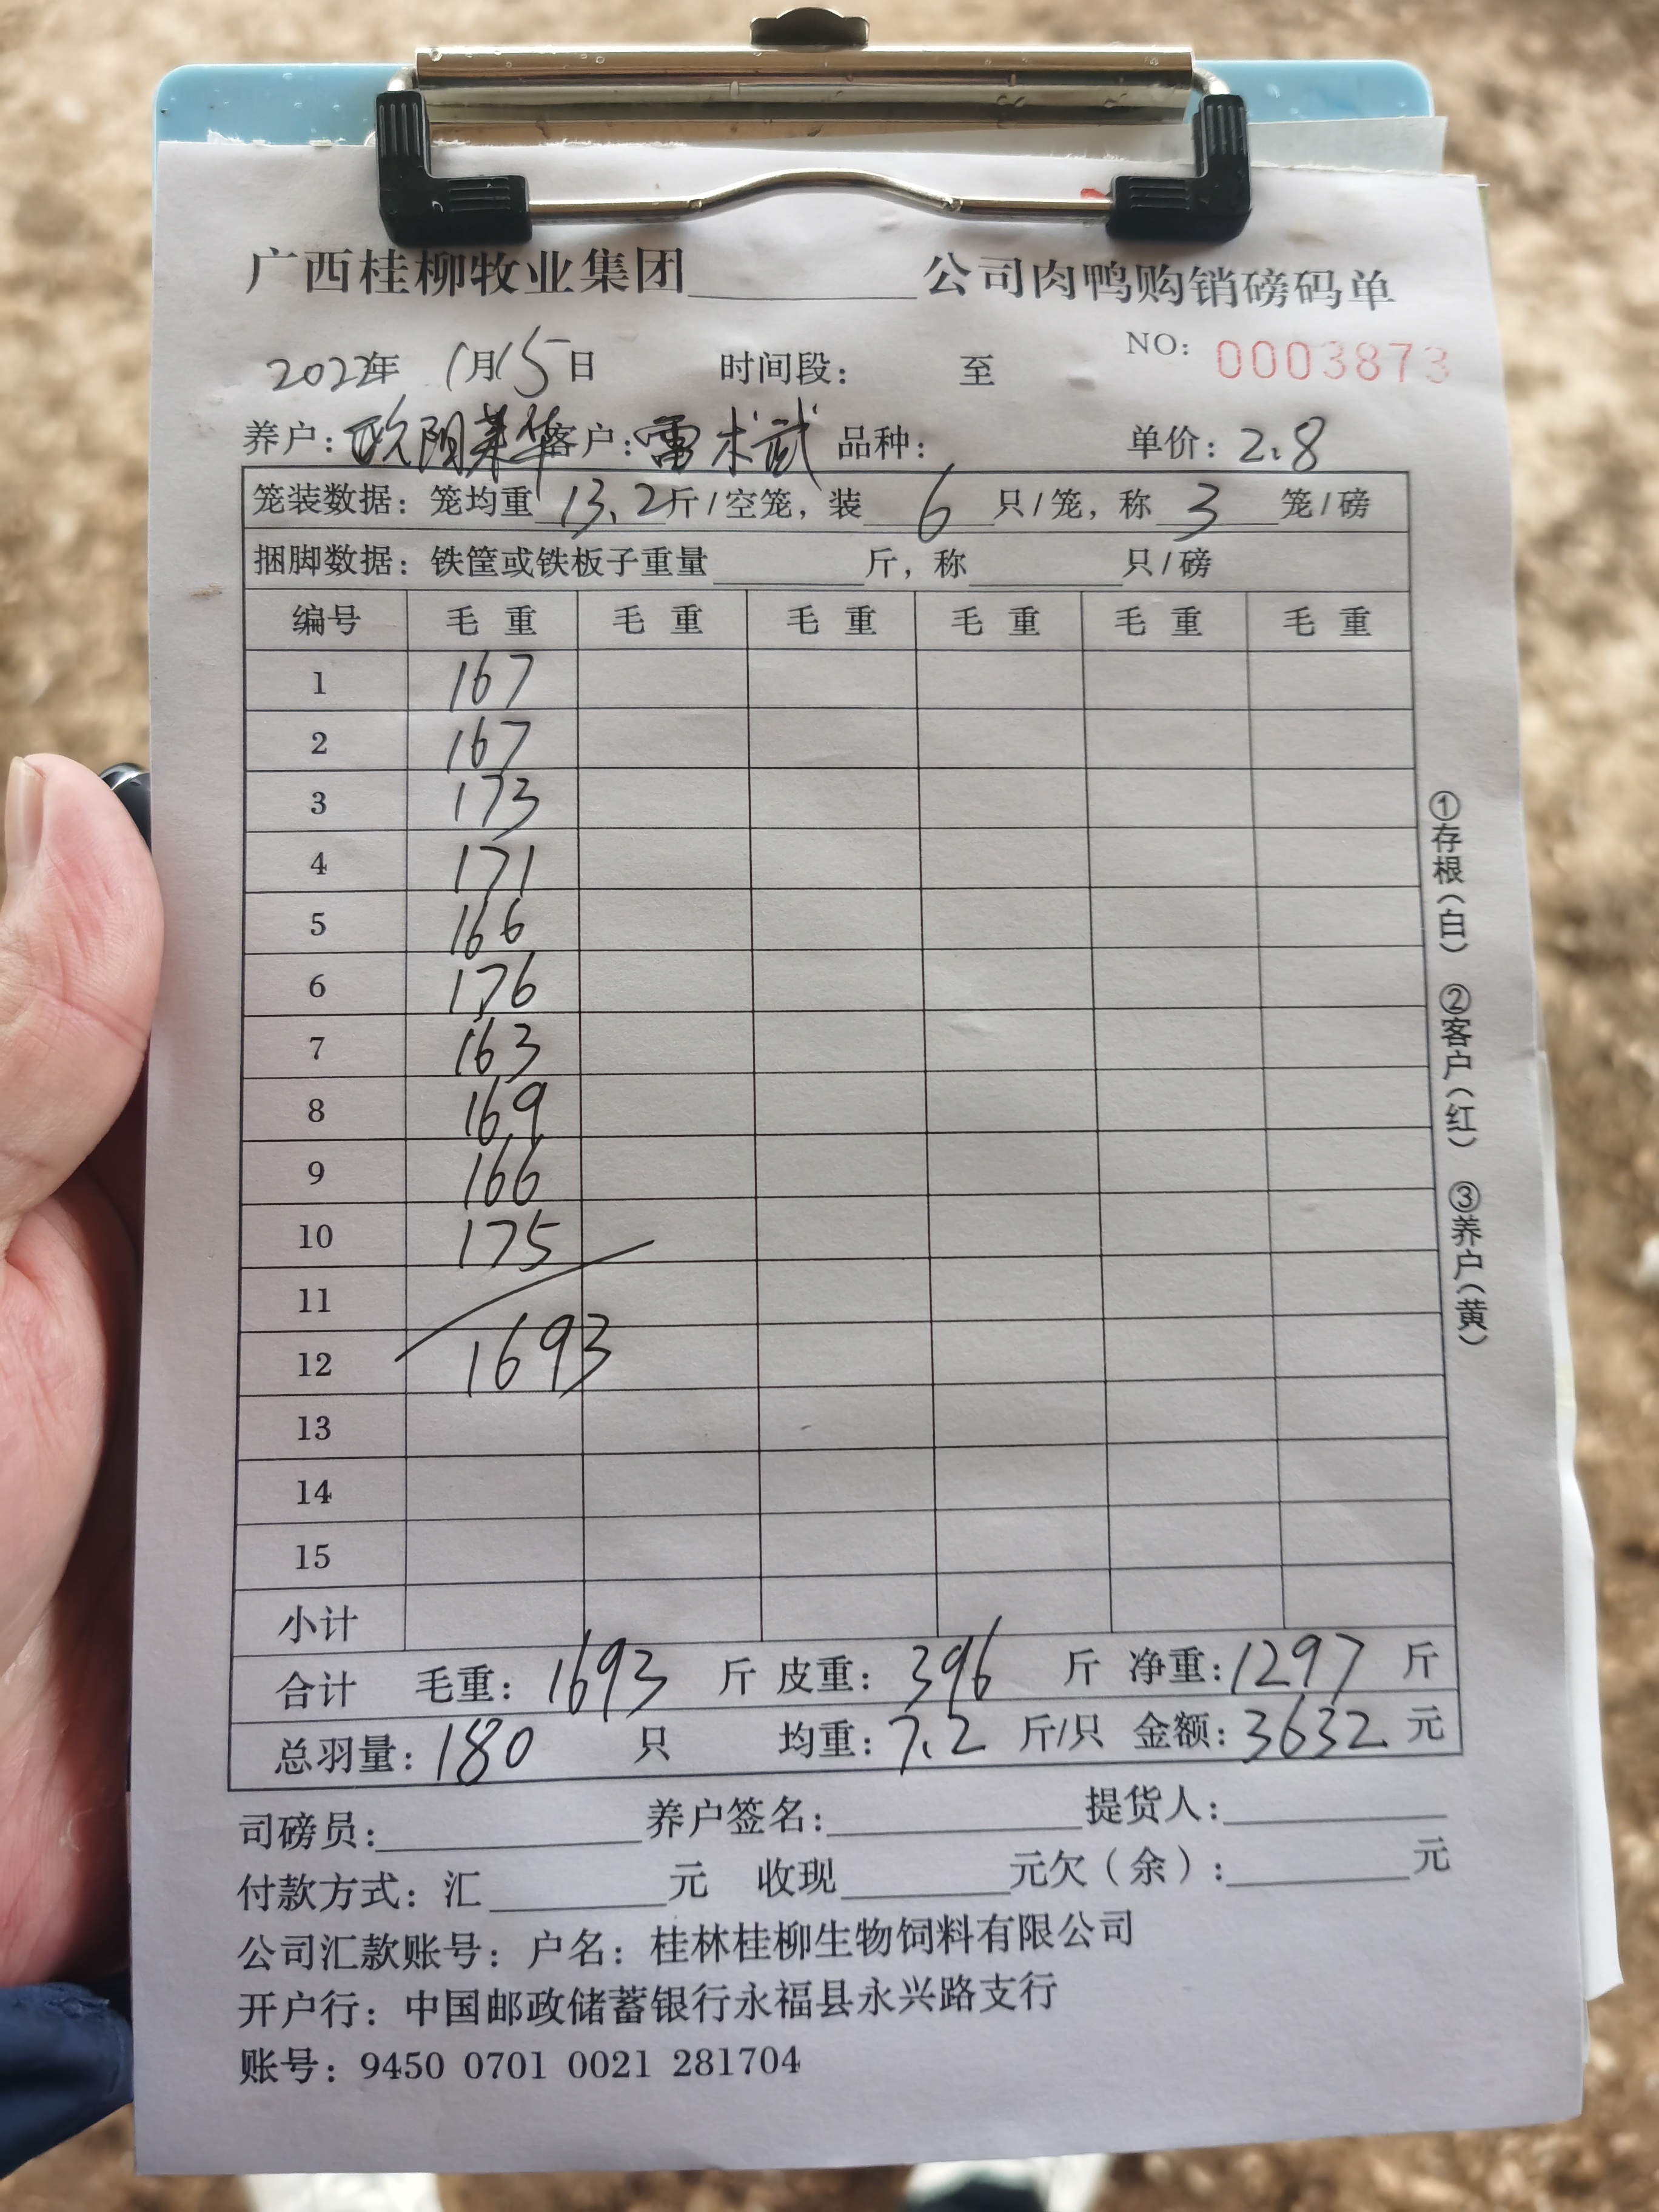 广西桂柳牧业集团________公司肉鸭购销磅码单
NO：0003873
2022年 1月15日 时间段： 至
养户：欧阳 华 客户：雷术武 品种： 单价：2.8
笼装数据：笼均重 13.2斤/空笼，装 6 只/笼，称 3 笼/磅
捆脚数据：铁筐或铁板子重量______斤，称______只/磅
编号 毛重 毛重 毛重 毛重 毛重 毛重
1 167
2 167
3 173
4 171
5 166
6 176
7 163
8 169
9 166
10 175
11
12 1693
13
14
15
小计
合计 毛重：1693 斤 皮重：396 斤 净重：1297 斤
总羽量：180 只 均重：7.2 斤/只 金额：3632 元
司磅员：________养户签名：________提货人：________
付款方式：汇______元 收现______元欠（余）：______元
公司汇款账号：户名：桂林桂柳生物饲料有限公司
开户行：中国邮政储蓄银行永福县永兴路支行
账号：9450 0701 0021 281704
①存根（白） ②客户（红） ③养户（黄）